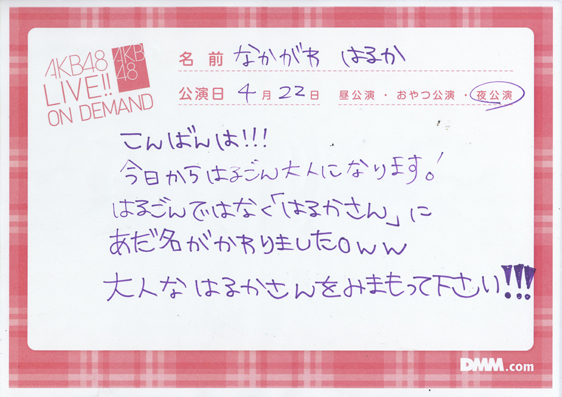 AKB48
LIVE!!
ON DEMAND
AKB
48
名前 なかがわ はるか
公演日 4月22日 昼公演・おやつ公演・夜公演
こんばんは!!!
今日からはるごん大人になります!
はるごんではなく「はるかさん」に
あだ名がかわりました。ww
大人なはるかさんをみまもって下さい!!!
DMM.com